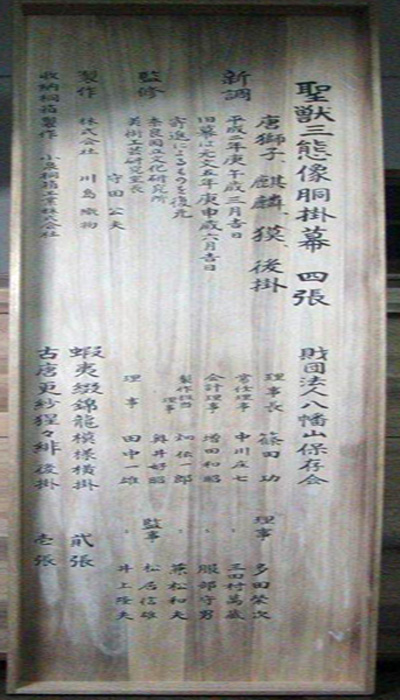 聖獣三態像胴掛幕 四張
唐獅子、麒麟、獏、後掛
新調 平成二年庚午歳三月吉日
旧幕は元文五年庚申歳六月吉日
寄進によるものを復元
監修 奈良国立文化研究所
美術工芸研究室長
守田公夫
製作 株式会社 川島織物
収納桐箱製作 小泉桐箱工業株式会社
財団法人八幡山保存会
理事長 篠田 功
常任理事 中川庄七
会計理事 増田和昭
製作担当理事 釼依一郎
奥井好昭
理事 田中一雄
理事 多田榮次
三田村萬蔵
服部守男
兼松和夫
監事 松居信雄
井上隆夫
蝦夷綴錦龍模様横掛 貮張
古唐更紗猩々緋後掛 壱張